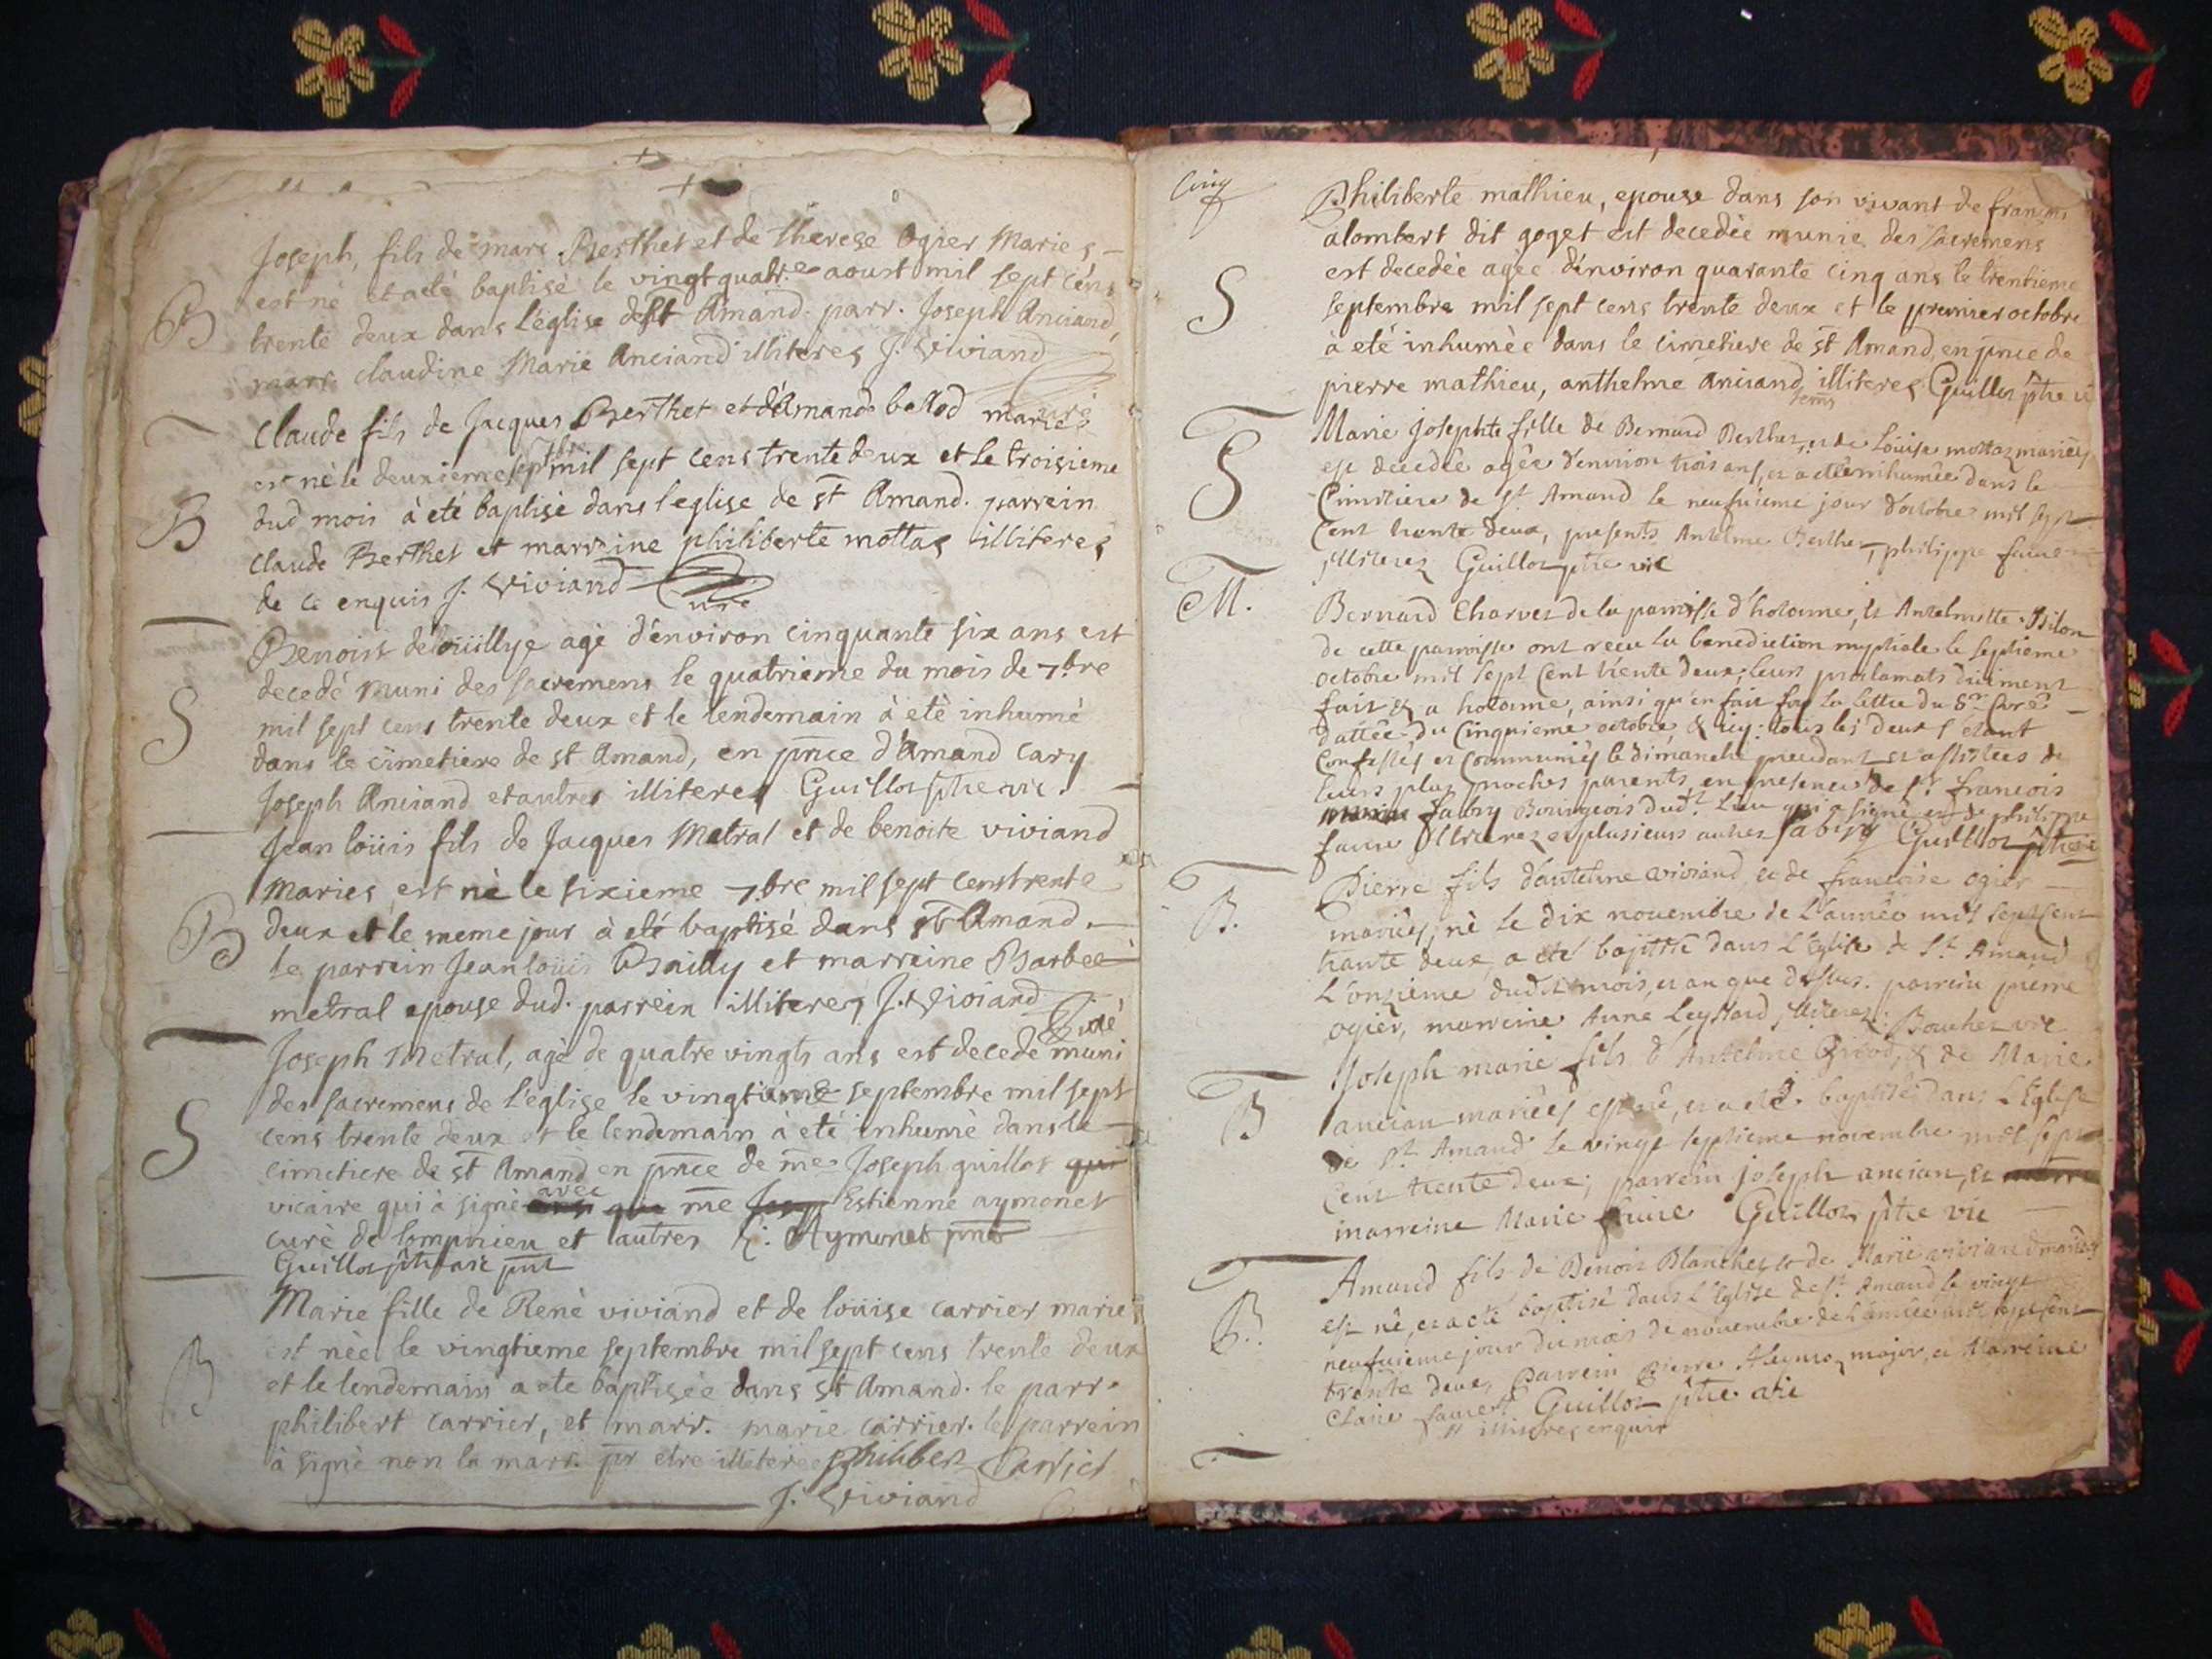 Joseph, fils de marc Berthet et de therese Ogier Maries
B
est né et a eté baptisé le vingt quatre aoust mil sept cens
trente deux dans l'église de st Amand. parr. Joseph Anciand
marr. claudine Marie Anciand illiteres J. Viviand
curé
Claude fils de Jacques Berthet et d'Amand ballod mariés
est né le deuxieme sept.bre mil sept cens trente deux et le troisieme
B
dud mois à eté baptisé dans l'eglise de st Amand. parrein
claude Berthet et marreine philiberte mottas illiteres
de ce enquis J. Viviand
curé
Benoist deloüillye agé d'environ cinquante six ans est
decedé muni des sacremens le quatrieme du mois de 7.bre
S
mil sept cens trente deux et le lendemain à eté inhumé
dans le cimetiere de st Amand, en pnce d'Amand Cary
Joseph Anciand et autres illiteres Guillot ptre vic.
Jean loüis fils de Jacques Metral et de benoite viviand
Maries est né le sixieme 7.bre mil sept cens trente
B
deux et le meme jour à eté baptisé dans st Amand.
le parrein Jean loüis Bailly et marreine Barbee
metral epouse dud. parrein illiteres J. Viviand
curé
Joseph Metral, agé de quatre vingts ans est decedé muni
des sacremens de l'église le vingtieme septembre mil sept
S
cens trente deux et le lendemain à eté inhumé dans le
cimetiere de st Amand en pnce de me Joseph guillot qui
vicaire qui à signé avec me Estienne aymonet
curé de lompnieu et autres E. Aymonet pnt
Guillot ptre vic pnt
Marie fille de René viviand et de loüise carrier maries
est née le vingtieme septembre mil sept cens trente deux
B
et le lendemain a ete baptisée dans st Amand. le parr.
philibert carrier, et marr. marie carrier. le parrein
à signé non la marr. pr etre illiteree philibert Carrier
J. Viviand
Cinq
Philiberte mathieu, epouse dans son vivant de francois
alombert dit goget est decedée munie des sacremens
S
est decedée agée d'environ quarante cinq ans le trentieme
septembre mil sept cens trente deux et le premier octobre
à eté inhumée dans le cimetiere de st Amand, en pnce de
pierre mathieu, anthelme Anciand illiteres Guillot ptre
Marie Josephte fille de Bernard Berthet, et de Loüise mottaz mariés
S
est decedée agée d'environ trois ans, et a eté inhumée dans le
Cimetiere de St Amand le neufvieme jour d'octobre mil sept
cent trente deux, presents Antelme Berthet, philippe faure
illiterez Guillot ptre vic
M.
Bernard Charvet de la paroisse d'hotonne, et Antelmette
de cette paroisse ont receu la benediction nuptiale le septieme
octobre mil sept cent trente deux; leurs proclamats duement
faits et a hotonne, ainsi qu'en fait foy la lettre du Sr Curé
dattée du Cinquieme octobre, & icy: tous les deux s'etant
Confessés et Communiés le dimanche precedant et assistees de
leurs plus proches parents, en presence de Sr francois
fabry Bourgeois dudt. Lieu qui a signé et de philippe
faure illiterez et plusieurs autres fabry Guillot ptre
Pierre fils d'antelme viviand et de francoise ogier
B.
mariés, né le dix novembre de l'année mil sept cent
trante deux, a eté baptisé dans L'Eglise de St Amand
L'onzieme dudit mois, et an que dessus. parrein pierre
ogier, marreine Anne Leyssard illiterez. Bouchet vic
Joseph marie fils d'Antelme & de Marie
B
ancian mariés est né, et a eté baptisé dans L'Eglise
de St Amand le vingt septieme novembre mil sept
Cent trente deux; parrein joseph ancian, et
marreine Marie faure Guillot ptre vic
Amand fils de Benois Blanchet & de Marie viviand mariés
B.
est né, et a eté baptisé dans L'Eglise de St Amand le vingt
neufvieme jour du mois de novembre de l'année mil sept cent
trente deux, Parrein Pierre major, et Marreine
Claire Guillot ptre vic
illiteres enquis